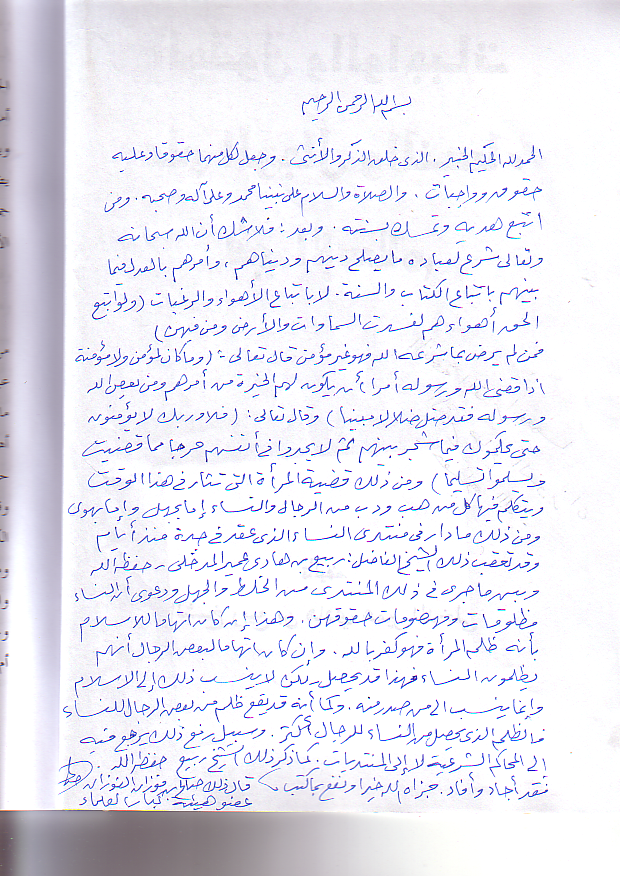 بسم الله الرحمن الرحيم
الحمد لله الحكيم الخبير. الذي خلق الذكر والأنثى. وجعل لكل منهما حقوقا وعليه
حقوق وواجبات. والصلاة والسلام على نبينا محمد وعلى آله وصحبه. ومن
اتبع هديه وتمسك بسنته. وبعد: فلا شك أن الله سبحانه
وتعالى شرع لعباده ما يصلح دينهم ودنياهم، وأمرهم بالعدل فيما
بينهم باتباع الكتاب والسنة. لا باتباع الأهواء والرغبات (ولو اتبع
الحق أهواءهم لفسدت السماوات والأرض ومن فيهن)
فمن لم يرض بما شرعه الله فهو غير مؤمن قال تعالى: (وما كان لمؤمن ولا مؤمنة
اذا قضى الله ورسوله أمرا أن يكون لهم الخيرة من أمرهم ومن يعص الله
ورسوله فقد ضل ضلالا مبينا) وقال تعالى: (فلا وربك لا يؤمنون
حتى يحكموك فيما شجر بينهم ثم لا يجدوا في أنفسهم حرجا مما قضيت
ويسلموا تسليما) ومن ذلك قضية المرأة التي تثار في هذا الوقت
ويتكلم فيها كل من هب ودب من الرجال والنساء إما بجهل وإما بهوى
ومن ذلك ما دار في منتدى النساء الذي عقد في جدة منذ أيام
وقد تعقب ذلك الشيخ الفاضل: ربيع بن هادي عمير المدخلي - حفظه الله
وبين ما جرى في ذلك المنتدى من الخلط والجهل ودعوى أن النساء
مظلومات ومهضومات حقوقهن. وهذا إن كان اتهاما للاسلام
بأنه ظلم المرأة فهو كفر بالله. وإن كان اتهاما لبعض الرجال أنهم
يظلمون النساء فهذا قد يحصل ولكن لا ينسب ذلك إلى الاسلام
وإنما ينسب الى من صدر منه. وكما أنه قد يقع ظلم من بعض الرجال للنساء
فالظلم الذي يحصل من النساء للرجال أكثر. وسبيل رفع ذلك يرجع فيه
الى المحاكم الشرعية لا إلى المنتديات. كما ذكر ذلك الشيخ ربيع حفظه الله.
فقد أجاد وأفاد. جزاه الله خيرا ونفع بما كتب
قال ذلك صالح بن فوزان الفوزان
عضو هيئة كبار العلماء